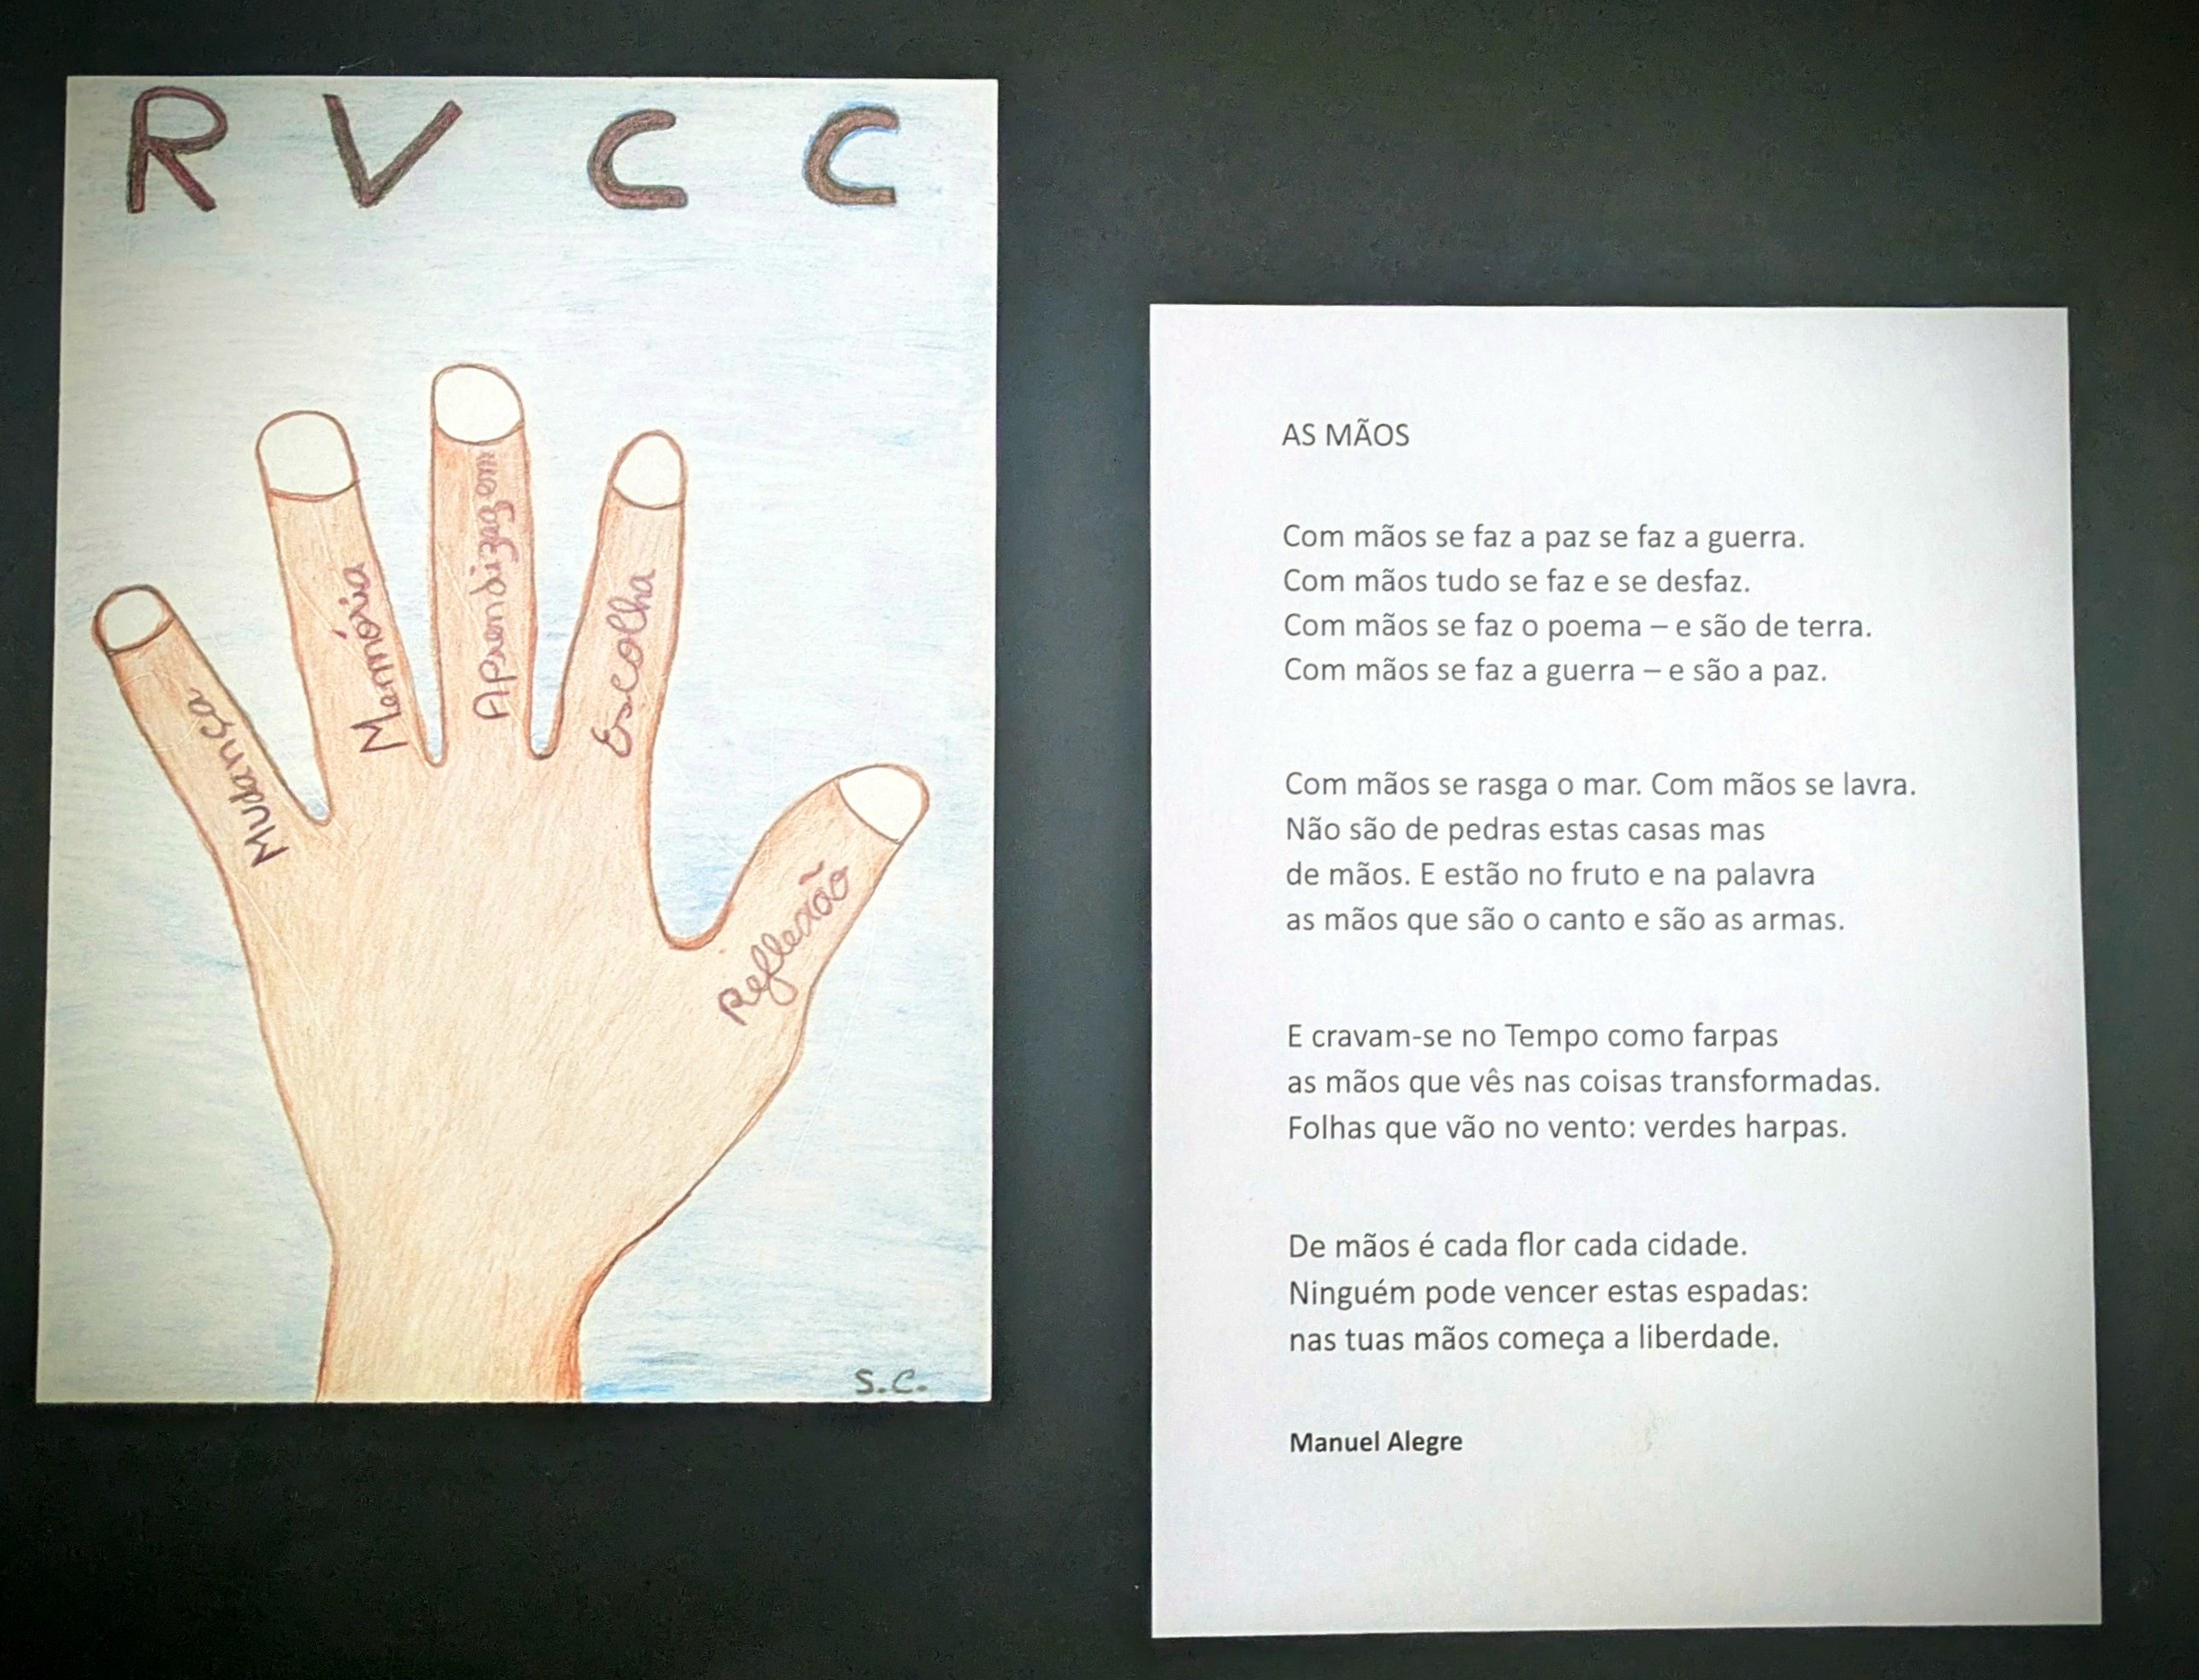 R V C C
Mudança
Memória
Aprendizagem
Escolha
Reflexão
S.C.
AS MÃOS
Com mãos se faz a paz se faz a guerra.
Com mãos tudo se faz e se desfaz.
Com mãos se faz o poema – e são de terra.
Com mãos se faz a guerra – e são a paz.
Com mãos se rasga o mar. Com mãos se lavra.
Não são de pedras estas casas mas
de mãos. E estão no fruto e na palavra
as mãos que são o canto e são as armas.
E cravam-se no Tempo como farpas
as mãos que vês nas coisas transformadas.
Folhas que vão no vento: verdes harpas.
De mãos é cada flor cada cidade.
Ninguém pode vencer estas espadas:
nas tuas mãos começa a liberdade.
Manuel Alegre